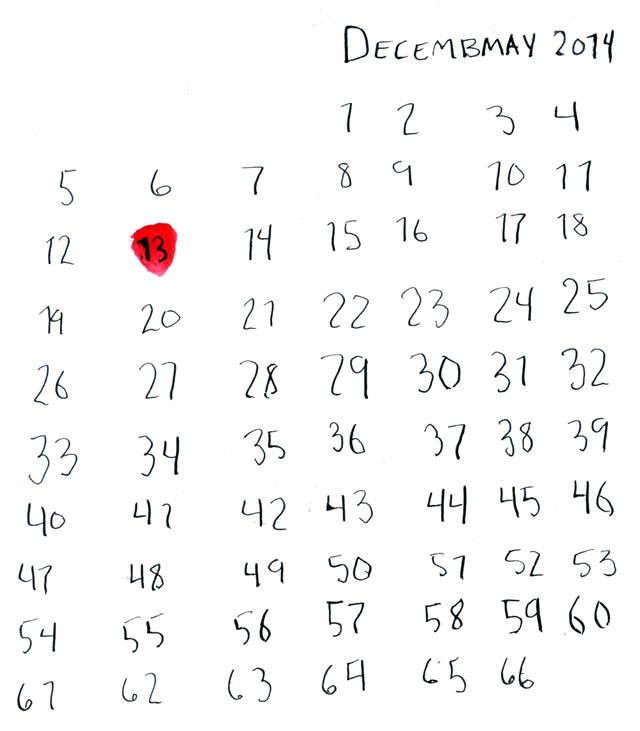 DECEMBMAY 2014
1 2 3 4
5 6 7 8 9 10 11
12 13 14 15 16 17 18
19 20 21 22 23 24 25
26 27 28 29 30 31 32
33 34 35 36 37 38 39
40 41 42 43 44 45 46
47 48 49 50 51 52 53
54 55 56 57 58 59 60
61 62 63 64 65 66